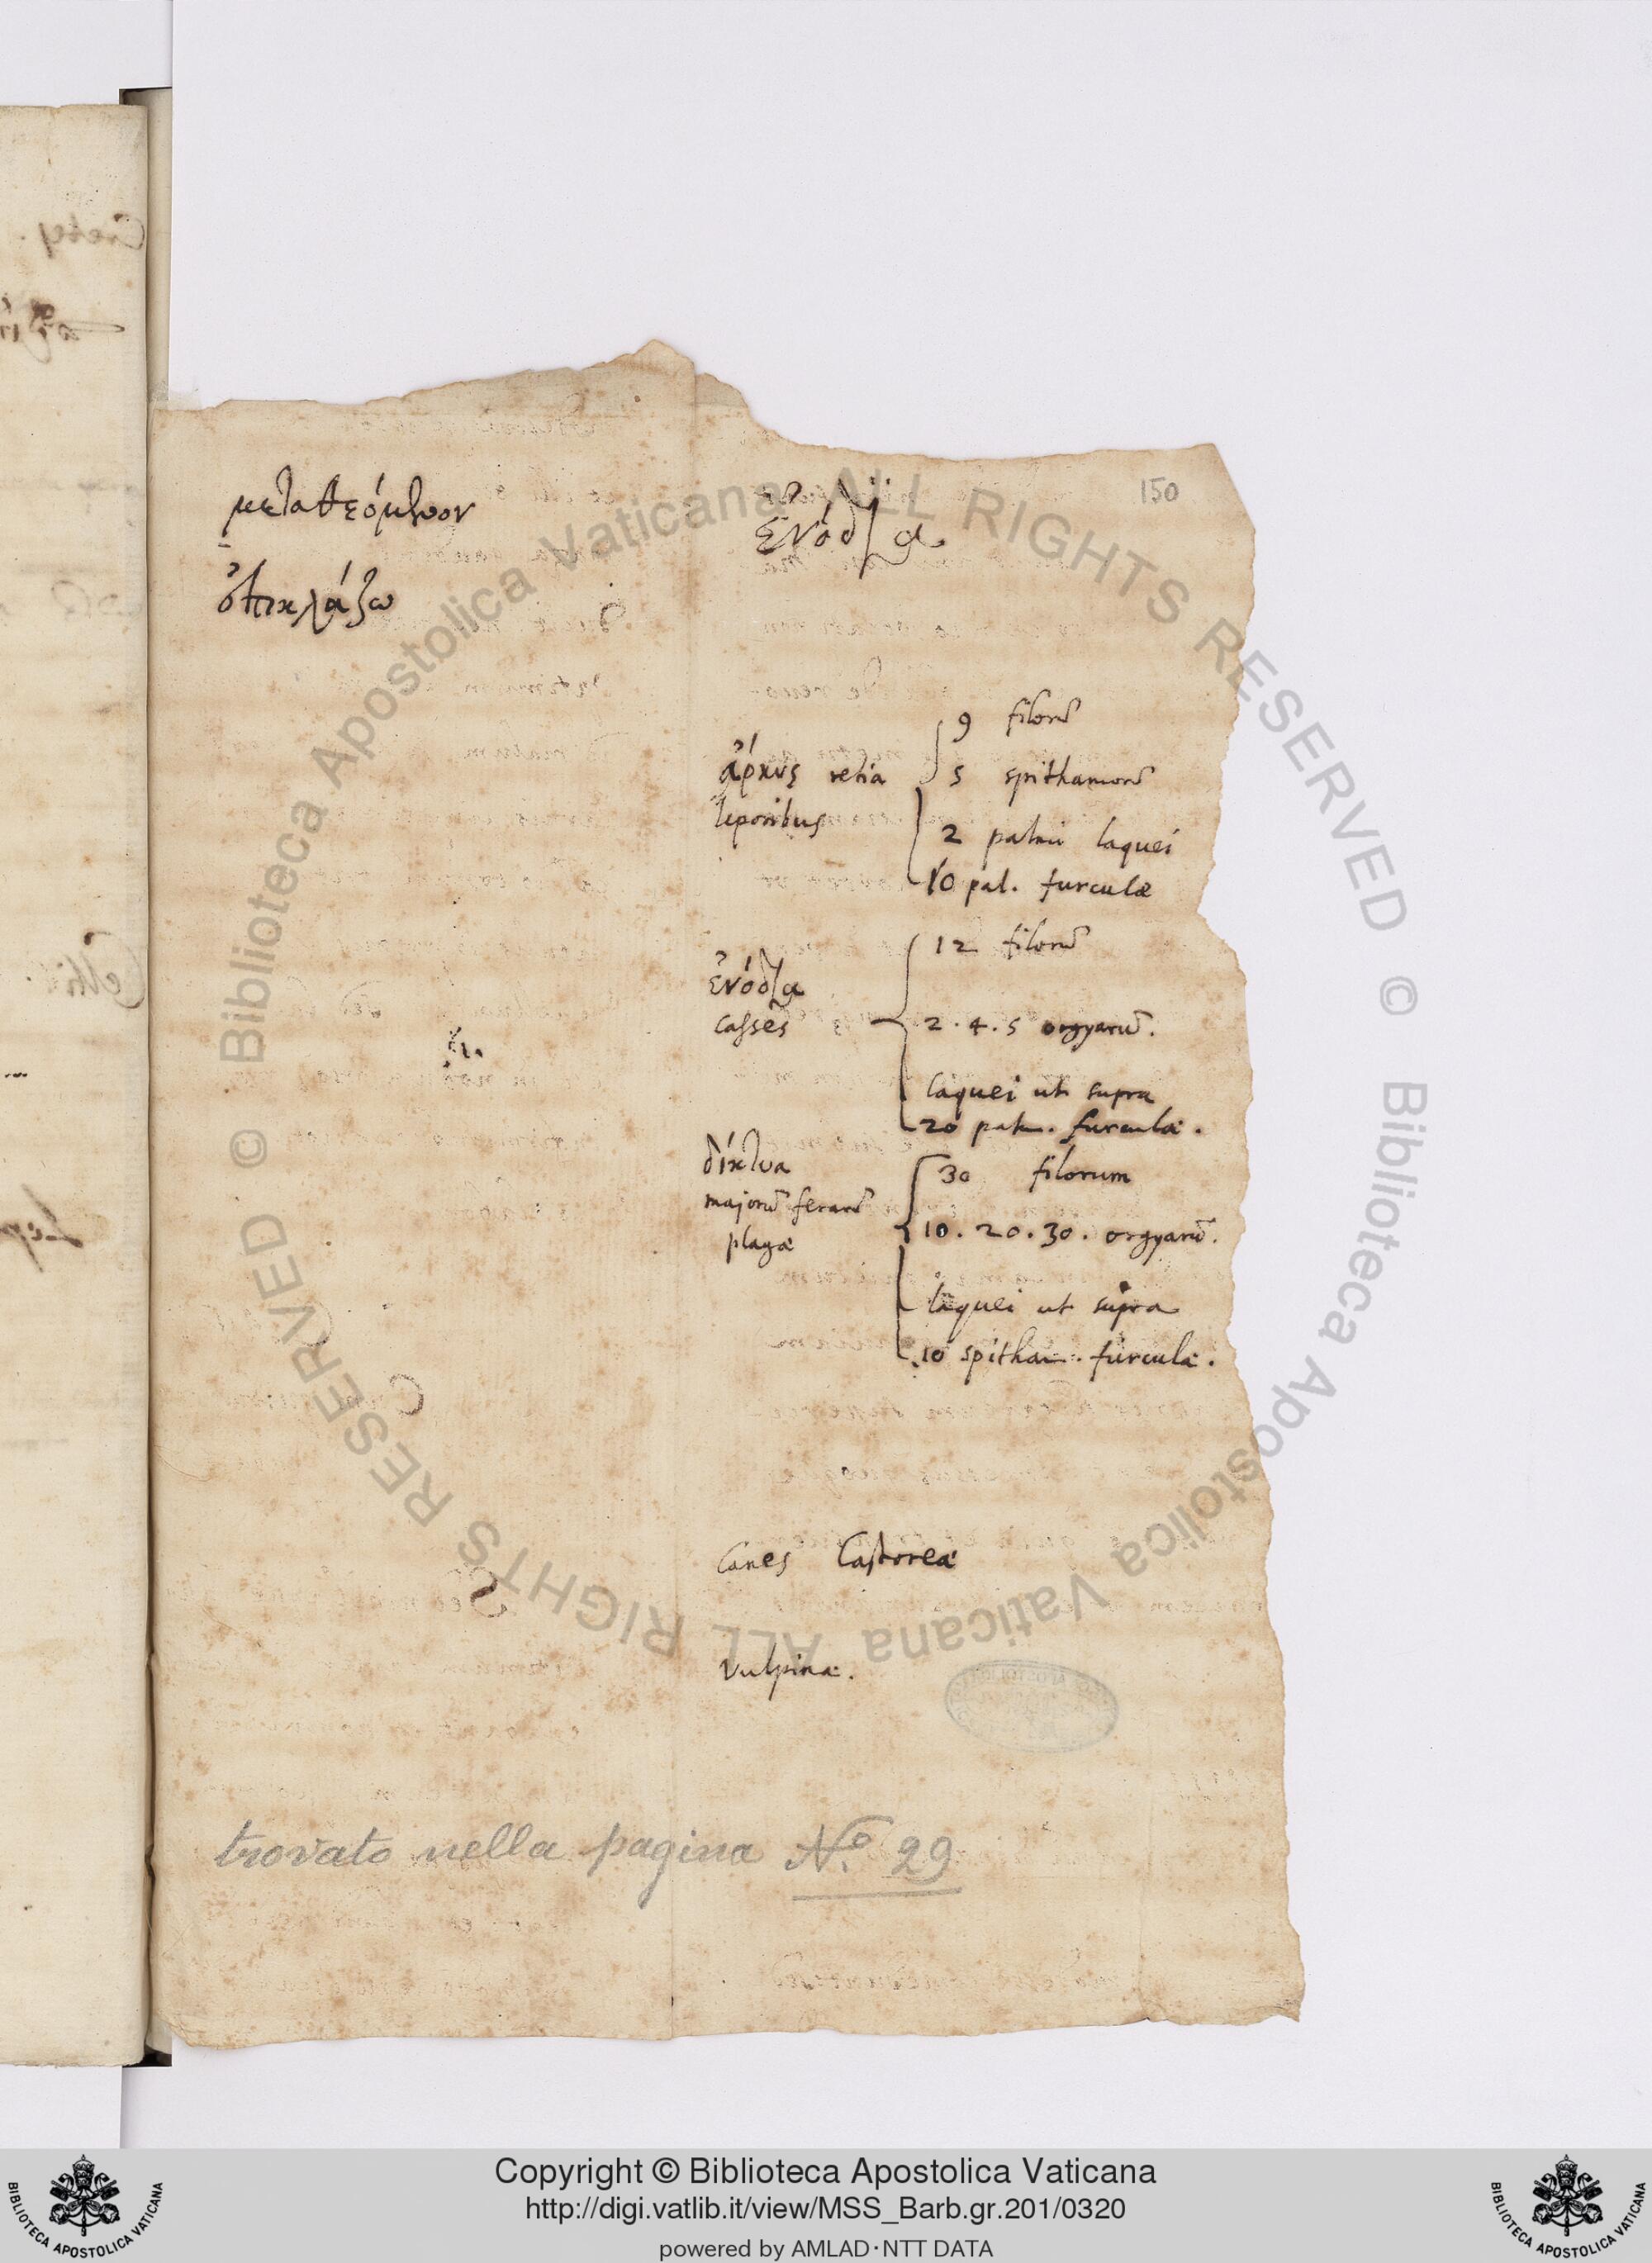 150
μεταθεόμενον
ὀπικλάζω
ἐνόδια
ἄρκυς retia
leporibus
9 filorũ
5 spithamorũ
2 palmi laquei
10 pal. furculæ
ἐνόδια
casses
12 filorũ
2 . 4 . 5 orgyarũ.
laquei ut supra
20 palm. furculæ.
δίκτυα
majorũ ferarũ
plagæ
30 filorum
10 . 20 . 30 . orgyarũ.
laquei ut supra
10 spitham. furculæ.
Canes Castoreæ
Vulpinæ.
trovato nella pagina Nº. 29
© Biblioteca Apostolica Vaticana ALL RIGHTS RESERVED © Biblioteca Apostolica Vaticana ALL RIGHTS RESERVED
Copyright © Biblioteca Apostolica Vaticana
http://digi.vatlib.it/view/MSS_Barb.gr.201/0320
powered by AMLAD·NTT DATA
BIBLIOTECA APOSTOLICA VATICANA
BIBLIOTECA APOSTOLICA VATICANA